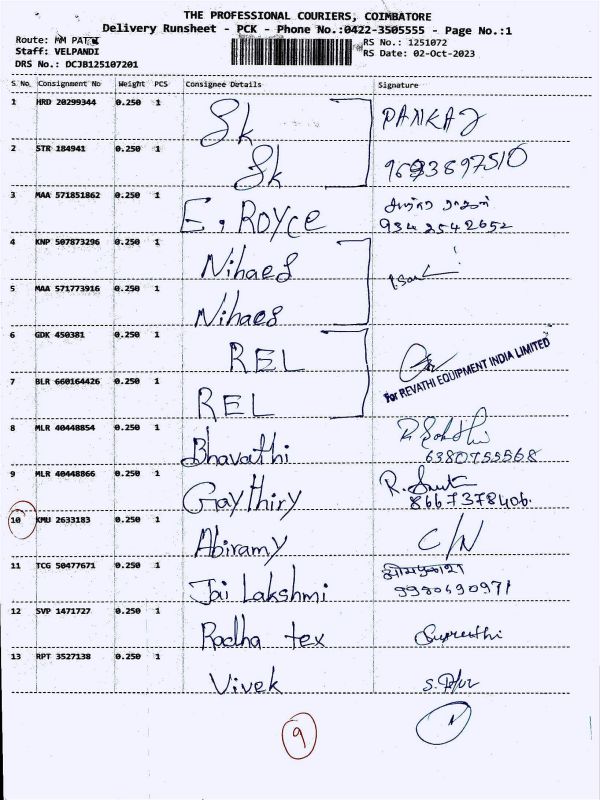 THE PROFESSIONAL COURIERS, COIMBATORE
Delivery Runsheet - PCK - Phone No.:0422-3505555 - Page No.:1
Route: MM PATTI RS No.: 1251072
Staff: VELPANDI RS Date: 02-Oct-2023
DRS No.: DCJB125107201
S No Consignment No Weight PCS Consignee Details Signature
1 HRD 20299344 0.250 1 Sk PANKAJ
2 STR 184941 0.250 1 Sk 9693897510
3 MAA 571851862 0.250 1 E. ROYCE
9342542652
4 KNP 507873296 0.250 1 Nihaes
5 MAA 571773916 0.250 1 Nihaes
6 GDK 450381 0.250 1 REL
for REVATHI EQUIPMENT INDIA LIMITED
7 BLR 660164426 0.250 1 REL
8 MLR 40448854 0.250 1 Bhavathi
6380755568
9 MLR 40448866 0.250 1 Gaythiry
8667378406.
10 KMU 2633183 0.250 1 Abiramy C/N
11 TCG 50477671 0.250 1 Jai Lakshmi ओमप्रकाश
9980690971
12 SVP 1471727 0.250 1 Radha tex
13 RPT 3527138 0.250 1 Vivek
9